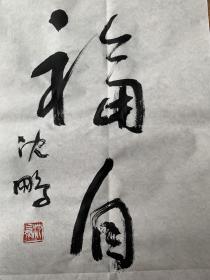 福自
沈鹏